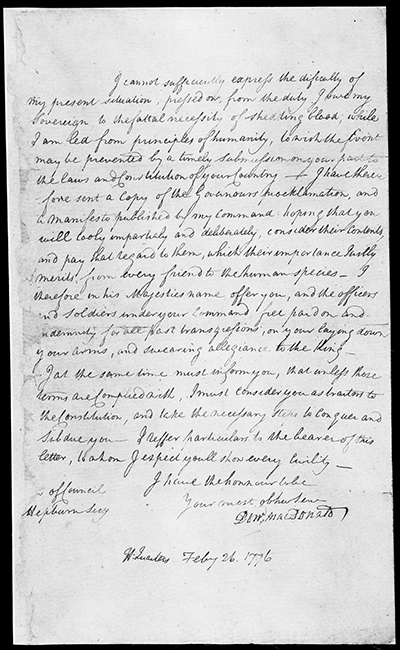 I cannot sufficiently express the dificulty of
my present situation, pressed on, from the duty I owe my
Sovereign to the fattal necessity of shedding blood, while
I am led from principles of humanity, to wish the Event
may be prevented by a timely submission on your part to
the laws and Constitution of your Country — I have there
fore sent a Copy of the Governours proclamation, and
a Manifesto published by my command. hoping that you
will cooly impartialy and deliberately, consider their Contents,
and pay that regard to them, which their importance Justly
merits, from every friend to the human species — I
therefore in his Majesties name offer you, and the officers
and Soldiers under your Command free pardon and
indemnity for all past transgresions, on your laying down
your arms, and swearing allegiance to the King —
I at the same time must inform you, that unless these
terms are Complied with, I must consider you as traitors to
the Constitution, and take the necessary steps to Conquer and
Subdue you — I reffer particulars to the bearer of this
letter, to whom I expect youll show every Civility —
I have the honhour to be
of Council Your most obhur Serv
Hepburn Secy Don. MacDonald
Hd Quarters Feby 26. 1776